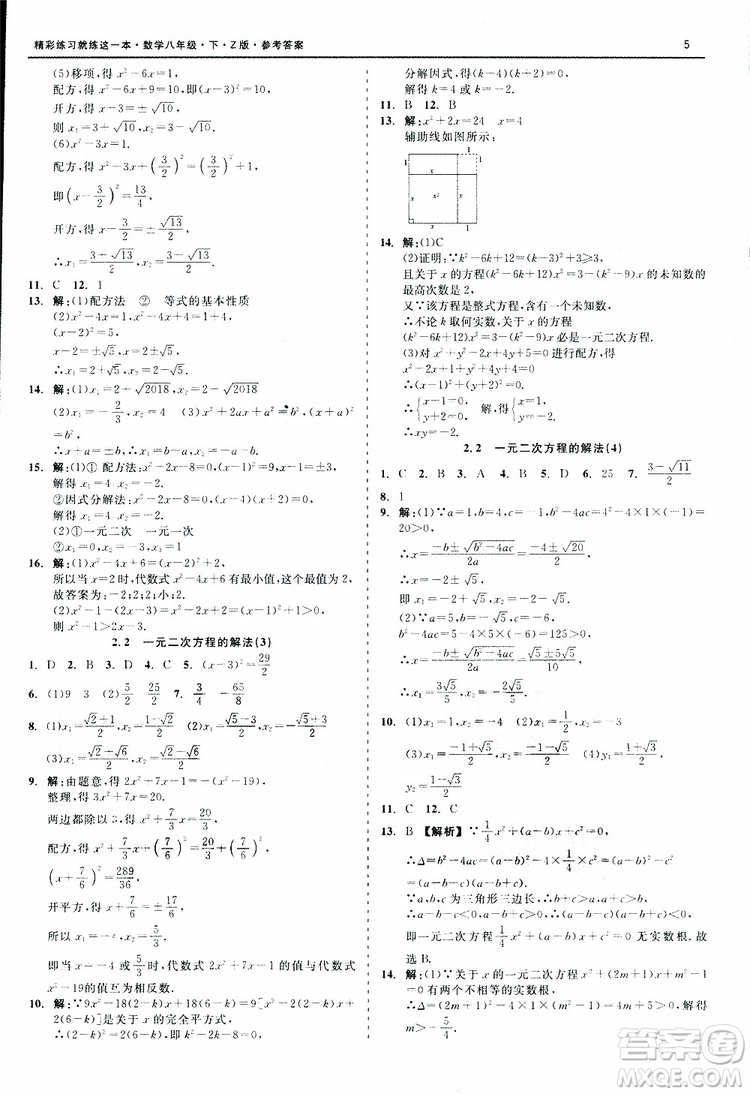 精彩练习就练这一本·数学八年级·下·Z版·参考答案 5
(5)移项,得 x²-6x=1.
配方,得 x²-6x+9=10.
开方,得 x-3=±√10.
则 x₁=3+√10,x₂=3-√10.
(6)x²-3x=1.
配方,得 x²-3x+(3/2)²=(3/2)²+1,
即(x-3/2)²=13/4,
开方,得 x-3/2=±√13/2,
∴x₁=(3+√13)/2,x₂=(3-√13)/2.
11. C 12. 1
13. 解:(1)配方法 ② 等式的基本性质
(2)x²-4x+4=1+4,
(x-2)²=5,
x-2=±√5,
∴x₁=2+√5,x₂=2-√5.
14. 解:(1)x₁=√2018,x₂=-√2018
(2)x₁=0,x₂=-2/3 (3)x²+2ax+a²=b²,(x+a)²
=b²,
∴x+a=±b,x₁=-a+b,x₂=-a-b.
15. 解:(1)① 配方法:x²-2x+1=9,(x-1)²=9,x-1=±3,
解得 x₁=4,x₂=-2.
②因式分解法:x²-2x-8=0,(x-4)(x+2)=0,解得 x₁=4,
x₂=-2.
(2)①一元二次 一元一次
②x₁=0,x₂=1,x₃=-1
16. 解:(1)x²-4x+6=(x-2)²+2,
所以当 x=2时,代数式 x²-4x+6有最小值,这个最值为 2,
故答案为:-2;2;2;小.
(2)x²-1>2x-3.
2.2 一元二次方程的解法(3)
1. D 2. B 3. D 4. C 5. (x-5/2)²=29/2
6. (1)9 3 (2)5/2 25/2 7. 3/4 -65/8
8. (1)x₁=(√2+1)/2,x₂=(1-√2)/2 (2)x₁=(√5-3)/2,x₂=(-√5-3)/2
(3)x₁=(√2+√6)/2,x₂=(√2-√6)/2
9. 解:由题意,得 2x²+7x-1+x²-19=0.
整理,得 3x²+7x=20.
两边都除以3,得 x²+7/3x=20/3,
配方,得 x²+7/3x+(7/6)²=20/3+(7/6)²,
(x+7/6)²=289/36,
开平方,得 x+7/6=±17/6,
所以 x₁=-4,x₂=5/3.
因此,当 x为-4或5/3时,代数式 2x²+7x-1与代数式
x²-19的值互为相反数.
10. 解:∵9x²-18(2-k)x+18(2-k)=9[x²-2(2-k)x+
2(6-k)]是关于 x的完全平方式,
∴(2-k)²=2(6-k),即 k²-2k-8=0,
分解因式,得(k-4)(k+2)=0,
解得 k=4或 k=-2.
11. B 12. B
13. 解:x²+2x=24 x=4
辅助线如图所示:
1
1
x
x x² x
x 1
14. 解:(1)C
(2)证明:∵k²-6k+12=(k-3)²+3≥3,
且关于 x的方程(k²-6k+12)x²=3-(k²-9)x的未知数的
最高次数是 2,
又∵该方程是整式方程,
∴不论 k取何实数,关于 x的方程
(k²-6k+12)x²=3-(k²-9)x必是一元二次方程.
(3)对 x²+y²-2x+4y+5=0进行配方,得
x²-2x+1+y²+4y+4=0
∴(x-1)²+(y+2)²=0.
∴{x-1=0, y+2=0. 解得{x=1, y=-2.
2.2 一元二次方程的解法(4)
1. C 2. B 3. A 4. D 5. D 6. 25 7. (3-√11)/2
8. 1
9. 解:(1)∵a=1,b=4,c=-1,b²-4ac=4²-4×1×(-1)=
20>0,
∴x=(-b±√(b²-4ac))/2a=(-4±√20)/2,
即 x₁=-2+√5,x₂=-2-√5.
(2)∵a=5,b=-√5,c=-6,
b²-4ac=5-4×5×(-6)=125>0,
∴x=(-b±√(b²-4ac))/2a=(√5±5√5)/10,
∴x₁=3√5/5,x₂=-2√5/5.
10. (1)x₁=2,x₂=-4 (2)x₁=-1,x₂=1/4
(3)x₁=(-1+√5)/2,x₂=(-1-√5)/2 (4)y₁=√5/5,
y₂=-√5/5
11. C 12. C
13. B 【解析】∵1/4x²+(a-b)x+c²=0,
∴Δ=b²-4ac=(a-b)²-4×1/4×c²=(a-b)²-c²
∴Δ=(a-b-c)(a-b+c).
∵a,b,c为三角形三边长,
∴a-b-c<0,a-b+c>0,
∴(a-b-c)(a-b+c)<0,
即一元二次方程1/4x²+(a-b)x+c²=0,无实数根.故
选 B.
14. 解:(1)∵关于 x的一元二次方程 x²+(2m+1)x+m²-1
=0有两个不相等的实数根,
∴Δ=(2m+1)²-4×1×(m²-1)=4m+5>0,
解得:m>-5/4.
答案圈
MXQE.COM